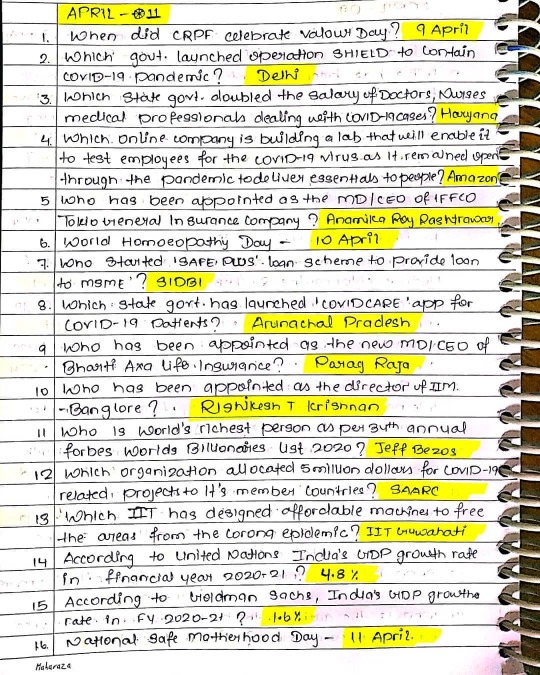 APRIL - 11
1. When did CRPF celebrate Valour Day? 9 April
2. Which govt. launched operation SHIELD to contain
COVID-19 pandemic? Delhi
3. Which State govt. doubled the salary of Doctors, Nurses
medical professionals dealing with COVID-19 cases? Haryana
4. Which online company is building a lab that will enable it
to test employees for the COVID-19 virus as it remained open
through the pandemic to deliver essentials to people? Amazon
5 Who has been appointed as the MD/CEO of IFFCO
Tokio General Insurance Company? Anamika Roy Rashtrawar
6. World Homoeopathy Day - 10 April
7. Who Started 'SAFE PLUS' loan scheme to provide loan
to MSME'? SIDBI
8. Which state govt. has launched 'COVIDCARE' app for
COVID-19 Patients? Arunachal Pradesh
9 Who has been appointed as the new MD/CEO of
Bharti Axa Life Insurance? Parag Raja
10 Who has been appointed as the director of IIM
-Banglore? Rishikesh T Krishnan
11 Who is World's richest person as per 34th annual
forbes Worlds Billionaries list 2020? Jeff Bezos
12 Which organization allocated 5 million dollars for COVID-19
related projects to it's member countries? SAARC
13 Which IIT has designed affordable machines to free
the areas from the corona epidemic? IIT Guwahati
14 According to United Nations India's GDP growth rate
in financial year 2020-21? 4.8%
15 According to Goldman Sachs, India's GDP growthe
rate in FY 2020-21? 1.6%
16. National Safe Motherhood Day - 11 April.
Maharaza